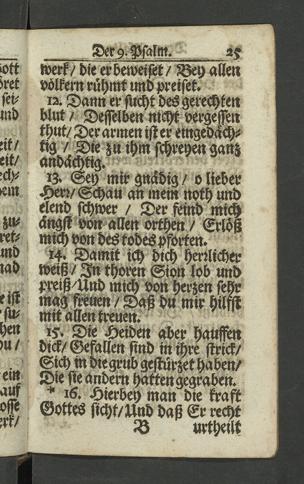 Der 9. Psalm. 25
werk/ die er beweiset/ Bey allen
völkern rühmt und preiset.
12. Dann er sucht des gerechten
blut/ Desselben nicht vergessen
thut/ Der armen ist er eingedäch-
tig/ Die zu ihm schreyen ganz
andächtig.
13. Sey mir gnädig/ o lieber
Herr/ Schau an mein noth und
elend schwer/ Der feind mich
ängst von allen orthen/ Erlöß
mich von des todes pforten.
14. Damit ich dich herrlicher
weiß/ In thoren Sion lob und
preiß/ Und mich von herzen sehr
mag freuen/ Daß du mir hilfst
mit allen treuen.
15. Die Heiden aber hauffen
dick/ Gefallen sind in ihre strick/
Sich in die grub gestürzet haben/
Die sie andern hatten gegraben.
* 16. Hierbey man die kraft
Gottes sicht/ Und daß Er recht
B urtheilt